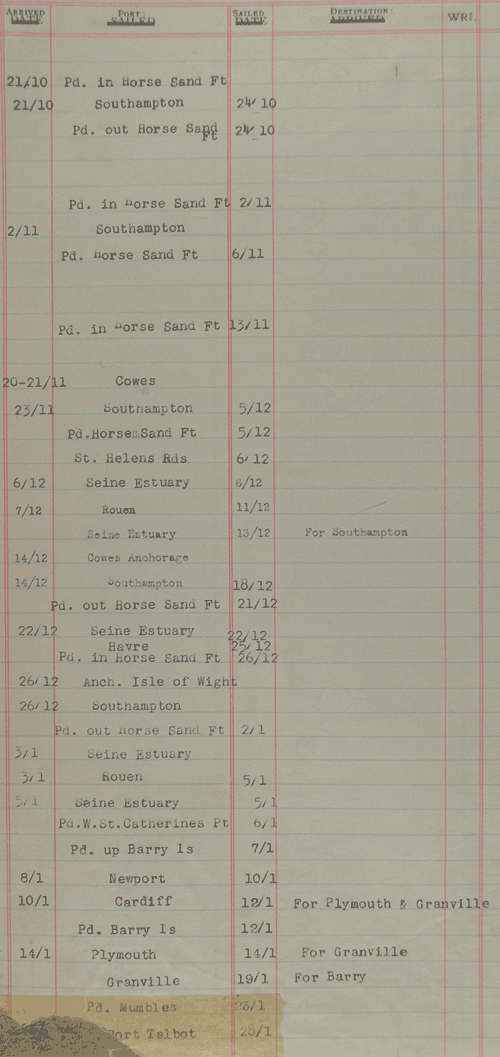 ARRIVED DATE PORT: SAILED SAILED DATE DESTINATION: ARRIVED WRI.
21/10 Pd. in Horse Sand Ft
21/10 Southampton 24/10
Pd. out Horse Sand Ft 24/10
Pd. in Horse Sand Ft 2/11
2/11 Southampton
Pd. Horse Sand Ft 6/11
Pd. in Horse Sand Ft 13/11
20-21/11 Cowes
23/11 Southampton 5/12
Pd.Horse Sand Ft 5/12
St. Helens Rds 6/12
6/12 Seine Estuary 6/12
7/12 Rouen 11/12
Seine Estuary 13/12 For Southampton
14/12 Cowes Anchorage
14/12 Southampton 18/12
Pd. out Horse Sand Ft 21/12
22/12 Seine Estuary 22/12
Havre 25/12
Pd. in Horse Sand Ft 26/12
26/12 Anch. Isle of Wight
26/12 Southampton
Pd. out Horse Sand Ft 2/1
3/1 Seine Estuary
3/1 Rouen 5/1
5/1 Seine Estuary 5/1
Pd.W.St.Catherines Pt 6/1
Pd. up Barry Is 7/1
8/1 Newport 10/1
10/1 Cardiff 12/1 For Plymouth & Granville
Pd. Barry Is 12/1
14/1 Plymouth 14/1 For Granville
Granville 19/1 For Barry
Pd. Mumbles 23/1
Port Talbot 28/1